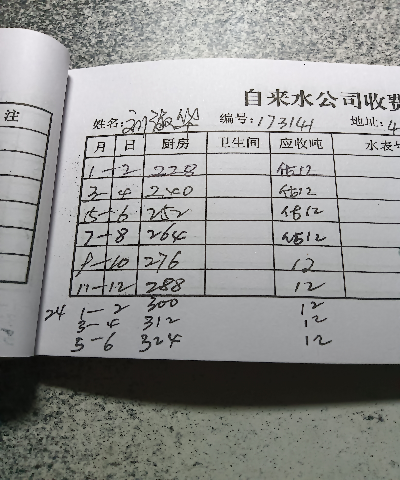 注
自来水公司收费
姓名: 编号:173141 地址:4
月 日 厨房 卫生间 应收吨 水表
1-2 228 估12
3-4 240 估12
5-6 252 估12
7-8 264 估12
9-10 276 12
11-12 288 12
24 1-2 300 12
3-4 312 12
5-6 324 12